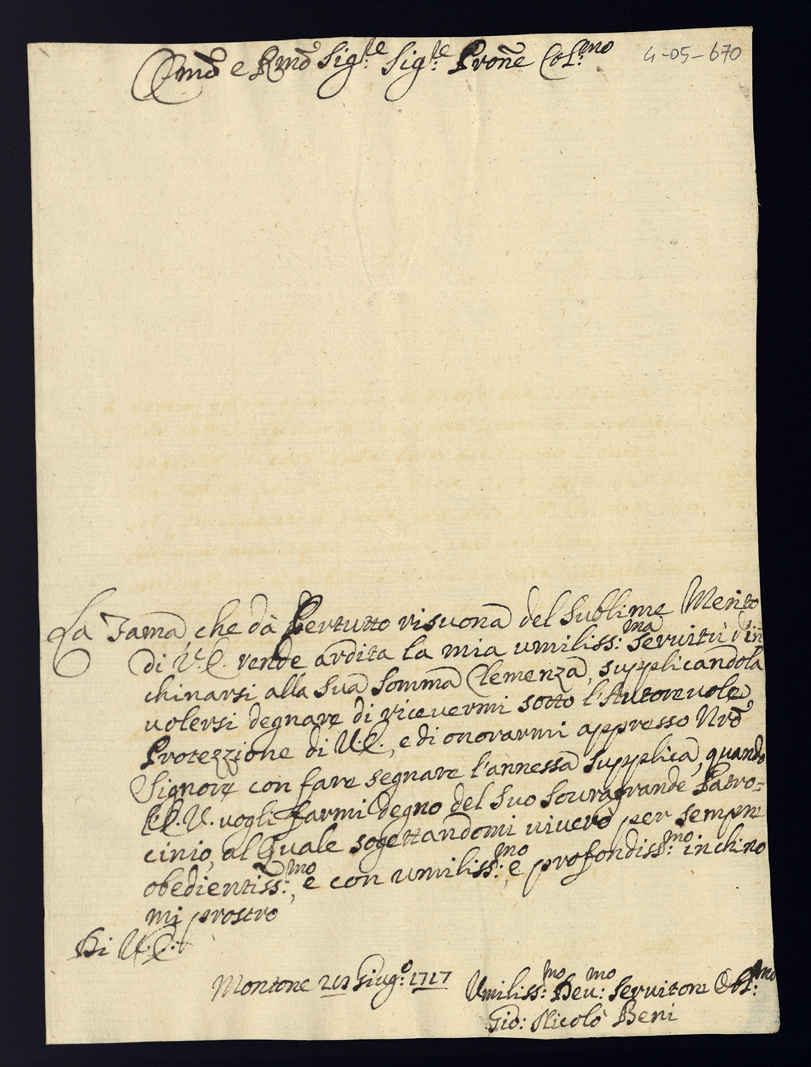 Em̃o e Rm̃o Sig:re Sig:re Prone Col:mo
4-05-670
La Fama che da Pertutto risuona del Sublime Merito
di V.E. rende ardita la mia umiliss:ma servitù d'in
chinarsi alla sua somma Clemenza, supplicandola
volersi degnare di ricevermi sotto l'Autorevole
Protezzione di V.E., e di onorarmi appresso Nr̃o
Signore con fare segnare l'annessa supplica, quando
l'E.V. vogli farmi degno del suo Souragrande Patro=
cinio, al Quale sogettandomi viverò per sempre
obedientiss:mo, e con umiliss:mo, e profondiss:mo inchino
mi prostro
Di V.E.
Montone Giug:o 1717
Umiliss:mo Deu:mo Servitore Obl:mo
Gio: Nicolò Beni